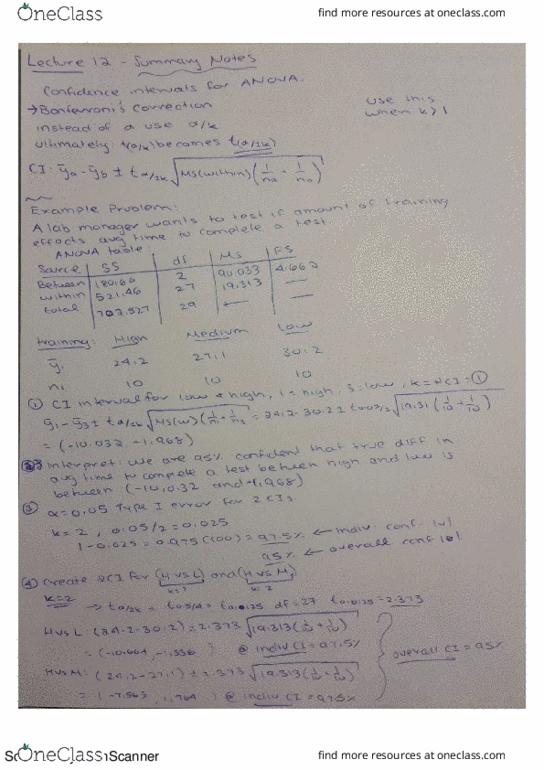 OneClass
find more resources at oneclass.com
Lecture 12 - Summary Notes
Confidence intervals for ANOVA.
→ Bonferroni's Correction
instead of α use α/k
use this when k>1
ultimately: t(α/2) becomes t(α/2k)
CI: ȳa - ȳb ± tα/2k √MS(within)(1/na + 1/nb)
Example Problem:
A lab manager wants to test if amount of training
effects avg time to complete a test.
ANOVA table:
Source SS df MS FS
Between 180.66 2 90.033 4.662
within 521.46 27 19.313 —
total 707.527 29 —
training: High Medium Low
ȳi 24.2 27.1 30.2
ni 10 10 10
① CI interval for low & high, 1 = high, 3 = low, k = #CI = ①
ȳ1 - ȳ3 ± tα/2k √MS(w)(1/n1 + 1/n3) = 24.2 - 30.2 ± t0.05/2 √19.31(1/10 + 1/10)
= (-10.032, -1.968)
② Interpret: we are 95% confident that true diff in
avg time to complete a test between high and low is
between (-10.032 and -1.968)
③ α = 0.05 Type I error for 2 CIs
k = 2, 0.05/2 = 0.025
1 - 0.025 = 0.975 (100) = 97.5% ← indiv. conf. lvl
95% ← overall conf lvl
④ Create 2CI for (H vs L) and (H vs M)
k=2
→ tα/2k = t0.05/4 = t0.0125 df = 27 t0.0125 = 2.373
H vs L: (24.2 - 30.2) ± 2.373 √19.313(1/10 + 1/10)
= (-10.664, -1.336) @ indiv CI = 97.5%
H vs M: (24.2 - 27.1) ± 2.373 √19.313(1/10 + 1/10)
= (-7.563, 1.764) @ indiv CI = 97.5%
overall CI = 95%
OneClass
Scanner
find more resources at oneclass.com